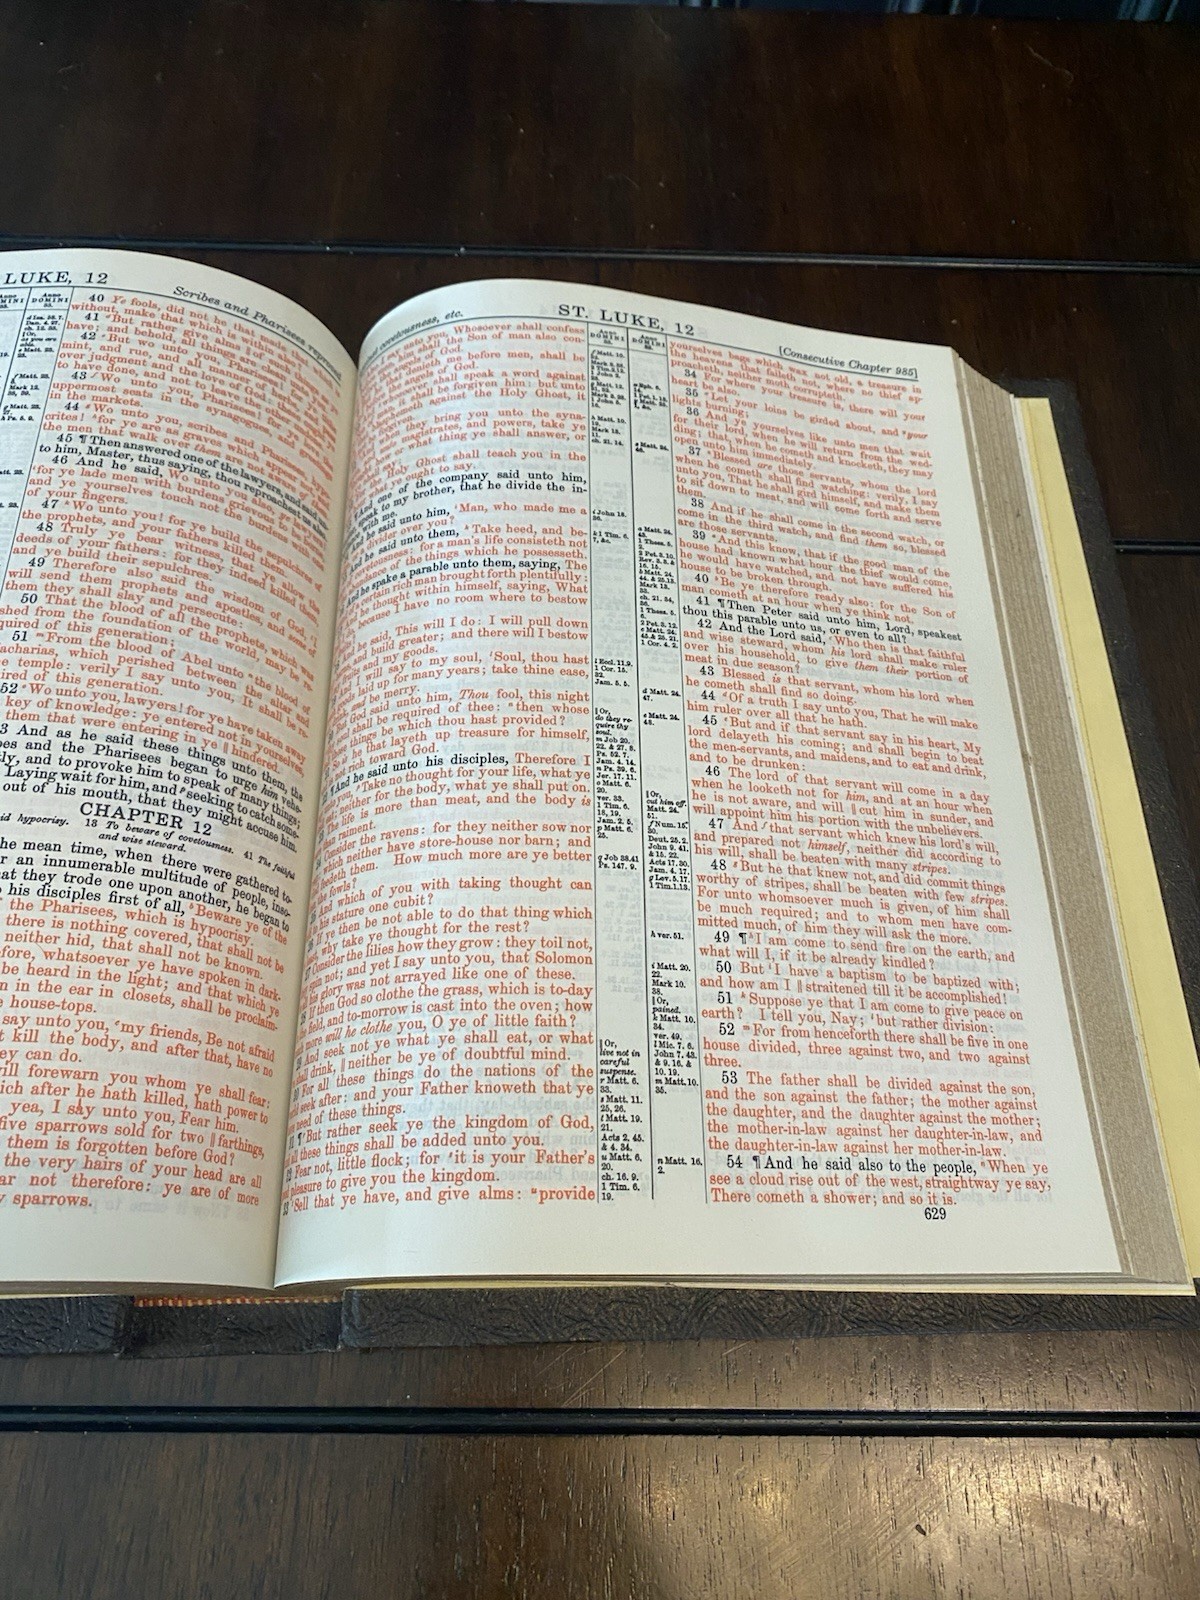 LUKE, 12
Scribes and Pharisees
Anno
DOMINI
33.
40 Ye fools, did not he that made that
without, make that which is within also?
41 But rather give alms of such things
have; and behold, all things are clean
42 But wo unto you, Pharisees! for ye
mint, and rue, and all manner of herbs,
over judgment and the love of God: these
to have done, and not to leave the other
43 Wo unto you, Pharisees! for ye
uppermost seats in the synagogues, and
in the markets.
44 Wo unto you, scribes and
crites! for ye are as graves which appear
the men that walk over them are not aware
45 ¶ Then answered one of the lawyers, and said
to him, Master, thus saying, thou reproachest us also.
46 And he said, Wo unto you also, ye lawyers!
for ye lade men with burdens grievous to be
and ye yourselves touch not the burdens with
of your fingers.
47 Wo unto you! for ye build the sepulchres of
the prophets, and your fathers killed them.
48 Truly ye bear witness, that ye allow the
deeds of your fathers: for they indeed killed them,
and ye build their sepulchres.
49 Therefore also said the wisdom of God, I
will send them prophets and apostles, and some of
them they shall slay and persecute:
50 That the blood of all the prophets, which was
shed from the foundation of the world, may be
quired of this generation;
51 From the blood of Abel unto the blood of
acharias, which perished between the
temple: verily I say unto you, It shall be
ired of this generation.
52 Wo unto you, lawyers! for ye have taken away
key of knowledge: ye entered not in yourselves,
them that were entering in ye hindered.
3 And as he said these things unto them, the
bes and the Pharisees began to urge him vehe-
ly, and to provoke him to speak of many things;
Laying wait for him, and seeking to catch some-
out of his mouth, that they might accuse him.
CHAPTER 12
id hypocrisy. 13 To beware of covetousness. 41 The faithful
and wise steward.
he mean time, when there were gathered to-
r an innumerable multitude of people, inso-
at they trode one upon another, he began to
his disciples first of all, Beware ye of the
the Pharisees, which is hypocrisy.
there is nothing covered, that shall not be
neither hid, that shall not be known.
fore, whatsoever ye have spoken in dark-
be heard in the light; and that which ye
n in the ear in closets, shall be proclaim-
house-tops.
say unto you, my friends, Be not afraid
t kill the body, and after that, have no
ey can do.
ill forewarn you whom ye shall fear:
ich after he hath killed, hath power to
yea, I say unto you, Fear him.
five sparrows sold for two || farthings,
them is forgotten before God?
the very hairs of your head are all
ar not therefore: ye are of more
y sparrows.
covetousness, etc.
ST. LUKE, 12
[Consecutive Chapter 985]
unto you, Whosoever shall confess
him shall the Son of man also con-
angels of God.
denieth me before men, shall be
the angels of God.
shall speak a word against
shall be forgiven him: but unto
phemeth against the Holy Ghost, it
they bring you unto the syna-
magistrates, and powers, take ye
how or what thing ye shall answer, or
Holy Ghost shall teach you in the
what ye ought to say.
And one of the company said unto him,
speak to my brother, that he divide the in-
with me.
he said unto him, Man, who made me a
divider over you?
And he said unto them, Take heed, and be-
covetousness: for a man's life consisteth not
abundance of the things which he possesseth.
And he spake a parable unto them, saying, The
a certain rich man brought forth plentifully:
he thought within himself, saying, What
because I have no room where to bestow
he said, This will I do: I will pull down
and build greater; and there will I bestow
and my goods.
And I will say to my soul, Soul, thou hast
goods laid up for many years; take thine ease,
and be merry.
God said unto him, Thou fool, this night
soul shall be required of thee: then whose
those things be which thou hast provided?
So is he that layeth up treasure for himself,
not rich toward God.
¶ And he said unto his disciples, Therefore I
you, Take no thought for your life, what ye
neither for the body, what ye shall put on.
The life is more than meat, and the body is
than raiment.
Consider the ravens: for they neither sow nor
which neither have store-house nor barn; and
feedeth them. How much more are ye better
fowls?
And which of you with taking thought can
to his stature one cubit?
If ye then be not able to do that thing which
why take ye thought for the rest?
Consider the lilies how they grow: they toil not,
spin not; and yet I say unto you, that Solomon
his glory was not arrayed like one of these.
If then God so clothe the grass, which is to-day
field, and to-morrow is cast into the oven; how
more will he clothe you, O ye of little faith?
And seek not ye what ye shall eat, or what
shall drink, || neither be ye of doubtful mind.
For all these things do the nations of the
seek after: and your Father knoweth that ye
need of these things.
¶ But rather seek ye the kingdom of God,
all these things shall be added unto you.
Fear not, little flock; for it is your Father's
pleasure to give you the kingdom.
33 Sell that ye have, and give alms: provide
Or,
do they re-
quire thy
soul.
m Job 20.
22. & 27. 8.
Ps. 52. 7.
Jam. 4. 14.
n Ps. 39. 6.
Jer. 17. 11.
o Matt. 6.
20.
ver. 33.
1 Tim. 6.
18, 19.
Jam. 2. 5.
p Matt. 6.
25.
q Job 38.41
Ps. 147. 9.
|| Or,
live not in
careful
suspense.
r Matt. 6.
33.
s Matt. 11.
25, 26.
t Matt. 19.
21.
Acts 2. 45.
& 4. 34.
u Matt. 6.
20.
ch. 16. 9.
1 Tim. 6.
19.
d Matt. 24.
47.
e Matt. 24.
48.
|| Or,
cut him off.
Matt. 24.
51.
f Num. 15.
30.
Deut. 25. 2.
John 9. 41.
& 15. 22.
Acts 17. 30.
Jam. 4. 17.
g Lev. 5. 17.
1 Tim. 1.13.
h ver. 51.
i Matt. 20.
22.
Mark 10.
38.
|| Or,
pained.
k Matt. 10.
34.
ver. 49.
l Mic. 7. 6.
John 7. 43.
& 9. 16. &
10. 19.
m Matt.10.
35.
n Matt. 16.
2.
yourselves bags which wax not old, a treasure in
the heavens that faileth not, where no thief ap-
proacheth, neither moth corrupteth.
34 For where your treasure is, there will your
heart be also.
35 Let your loins be girded about, and your
lights burning;
36 And ye yourselves like unto men that wait
for their lord, when he will return from the wed-
ding; that, when he cometh and knocketh, they may
open unto him immediately.
37 Blessed are those servants, whom the lord
when he cometh shall find watching: verily, I say
unto you, That he shall gird himself, and make them
to sit down to meat, and will come forth and serve
them.
38 And if he shall come in the second watch, or
come in the third watch, and find them so, blessed
are those servants.
39 And this know, that if the good man of the
house had known what hour the thief would come,
he would have watched, and not have suffered his
house to be broken through.
40 Be ye therefore ready also: for the Son of
man cometh at an hour when ye think not.
41 ¶ Then Peter said unto him, Lord, speakest
thou this parable unto us, or even to all?
42 And the Lord said, Who then is that faithful
and wise steward, whom his lord shall make ruler
over his household, to give them their portion of
meat in due season?
43 Blessed is that servant, whom his lord when
he cometh shall find so doing.
44 Of a truth I say unto you, That he will make
him ruler over all that he hath.
45 But and if that servant say in his heart, My
lord delayeth his coming; and shall begin to beat
the men-servants, and maidens, and to eat and drink,
and to be drunken:
46 The lord of that servant will come in a day
when he looketh not for him, and at an hour when
he is not aware, and will || cut him in sunder, and
will appoint him his portion with the unbelievers.
47 And that servant which knew his lord's will,
and prepared not himself, neither did according to
his will, shall be beaten with many stripes.
48 But he that knew not, and did commit things
worthy of stripes, shall be beaten with few stripes.
For unto whomsoever much is given, of him shall
be much required; and to whom men have com-
mitted much, of him they will ask the more.
49 ¶ I am come to send fire on the earth, and
what will I, if it be already kindled?
50 But I have a baptism to be baptized with;
and how am I || straitened till it be accomplished!
51 Suppose ye that I am come to give peace on
earth? I tell you, Nay; but rather division:
52 For from henceforth there shall be five in one
house divided, three against two, and two against
three.
53 The father shall be divided against the son,
and the son against the father; the mother against
the daughter, and the daughter against the mother;
the mother-in-law against her daughter-in-law, and
the daughter-in-law against her mother-in-law.
54 ¶ And he said also to the people, When ye
see a cloud rise out of the west, straightway ye say,
There cometh a shower; and so it is.
629